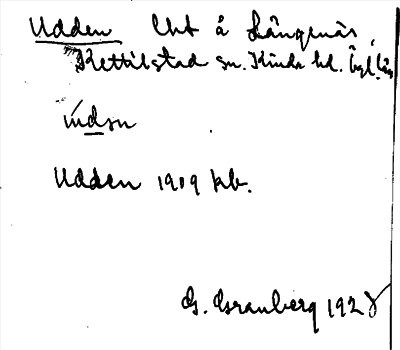 Udden Lht å Långenäs,
Kettilstad sn. Kinda hd. Ögl. län
Udden 1909 kb.
G. Granberg 1928